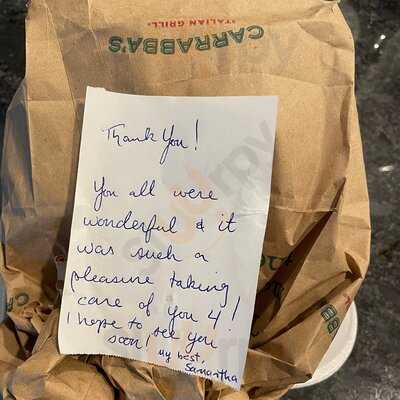 CARRABBA'S
ITALIAN GRILL
Thank You!
You all were
wonderful & it
was such a
pleasure taking
care of you 4!
I hope to see you
soon! My best,
Samantha